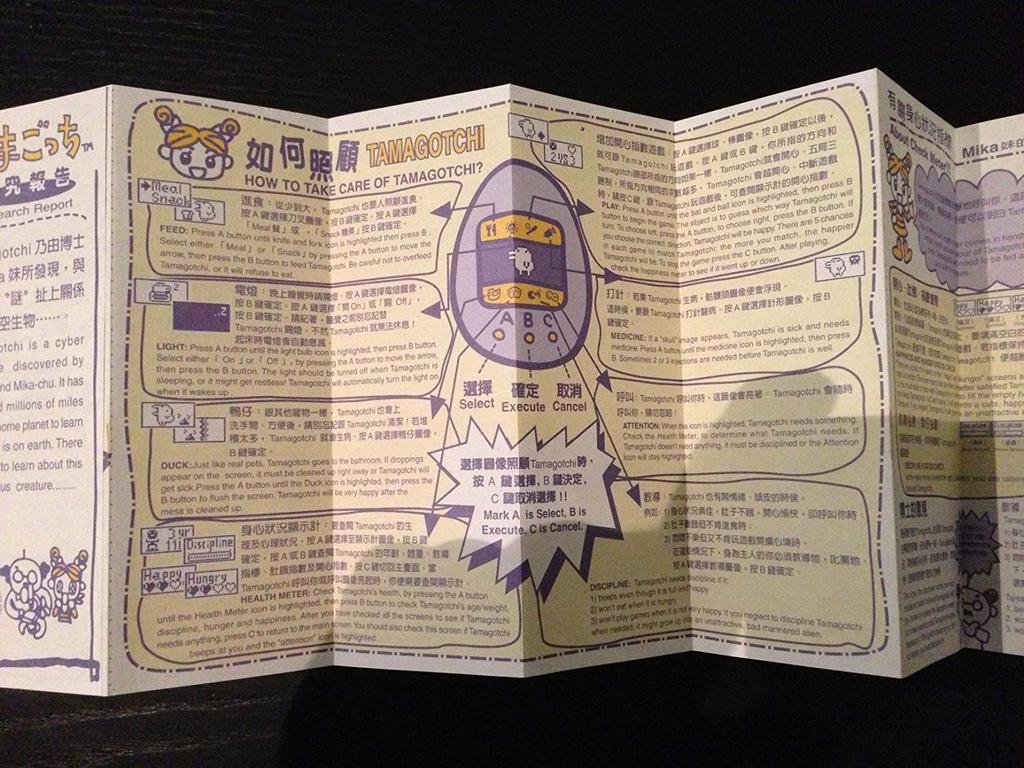 まごっち™
究報告
earch Report
gotchi 乃由博士
a 妹所發現，與
"謎" 扯上關係
空生物……。
otchi is a cyber
e discovered by
nd Mika-chu. It has
d millions of miles
ome planet to learn
is on earth. There
to learn about this
us creature........
如何照顧 TAMAGOTCHI
HOW TO TAKE CARE OF TAMAGOTCHI?
Meal
Snack
進食：從少到大，Tamagotchi 也要人照顧進食，
按 A 鍵選擇刀叉圖像，按 B 鍵確定，按 A 鍵選擇
「Meal 餐」或，「Snack 糖果」按 B 鍵確定。
FEED: Press A button until knife and fork icon is highlighted then press B.
Select either 「Meal」 or 「Snack」 by pressing the A button to move the
arrow, then press the B button to feed Tamagotchi. Be careful not to overfeed
Tamagotchi, or it will refuse to eat.
電燈：晚上睡覺時請關燈，按 A 鍵選擇電燈圖像，
按 B 鍵確定。按 A 鍵選擇「開 On」或「關 Off」，
按 B 鍵確定。請記著，睡覺之前別忘記替
Tamagotchi 關燈，不然 Tamagotchi 就無法休息！
起床時電燈會自動熄滅
LIGHT: Press A button until the light bulb icon is highlighted, then press B button.
Select either 「On」 or 「Off」, by pressing the A button to move the arrow,
then press the B button. The light should be turned off when Tamagotchi is
sleeping, or it might get restless! Tamagotchi will automatically turn the light on
when it wakes up
鴨仔：跟其他寵物一樣，Tamagotchi 也會上
洗手間。方便後，請別忘記跟 Tamagotchi 清潔！若堆
積太多，Tamagotchi 就會生病，按 A 鍵選擇鴨仔圖像，
B 鍵確定。
DUCK: Just like real pets, Tamagotchi goes to the bathroom. If droppings
appear on the screen, it must be cleaned up right away or Tamagotchi will
get sick. Press the A button until the Duck icon is highlighted, then press the
B button to flush the screen. Tamagotchi will be very happy after the
mess is cleaned up.
3yr
11
Discipline
Happy
Hungry
身心狀況顯示計：要查閱 Tamagotchi 的生
理及心理狀況，按 A 鍵選擇至顯示計圖像，按 B 鍵
確定，按 A 或 B 鍵查閱 Tamagotchi 的年齡、體重、教導
指標、肚餓指數及開心指數，按 C 鍵切回主畫面，當
Tamagotchi 呼叫你或呼叫圖像亮起時，你便需要查閱顯示計。
HEALTH METER: Check Tamagotchi's health, by pressing the A button
until the Health Meter icon is highlighted, then press B button to check Tamagotchi's age/weight,
discipline, hunger and happiness. After you have checked all the screens to see if Tamagotchi
needs anything, press C to return to the main screen. You should also check this screen if Tamagotchi
beeps at you and the "attention" icon is highlighted.
A B C
選擇 確定 取消
Select Execute Cancel
選擇圖像照顧Tamagotchi時，
按 A 鍵選擇，B 鍵決定，
C 鍵取消選擇 !!
Mark A is Select, B is
Execute, C is Cancel.
2 VS 3
增加開心指數遊戲，按 A 鍵選擇球、棒圖像，按 B 鍵確定以後，
就可跟 Tamagotchi 玩遊戲，按 A 鍵或 B 鍵，你所指的方向和
Tamagotchi 臉部所指的方向如果一樣，Tamagotchi 就會開心。五局三
勝制，所指方向相同的次數越多，Tamagotchi 會越開心。中斷遊戲
時，請按 C 鍵，跟 Tamagotchi 玩遊戲後，可查閱顯示計的開心指數。
PLAY: Press A button until the bat and ball icon is highlighted, then press B
button to begin the game. The object is to guess which way Tamagotchi will
turn. To choose left, press the A button, to choose right, press the B button. If
you choose the correct direction, Tamagotchi will be happy. There are 5 chances
in each game to match Tamagotchi: the more you match, the happier
Tamagotchi will be. To stop the game press the C button. After playing,
check the happiness meter to see if it went up or down.
打針：若果 Tamagotchi 生病，骷髏頭圖像便會浮現，
這時侯，要跟 Tamagotchi 打針醫病，按 A 鍵選擇針形圖像，按 B
鍵確定。
MEDICINE: If a "skull" image appears, Tamagotchi is sick and needs
medicine. Press A button until the medicine icon is highlighted, then press
B. Sometimes 2 or 3 injections are needed before Tamagotchi is well.
呼叫：Tamagotchi 呼叫你時，這圖像會亮著。Tamagotchi 會隨時
呼叫你，請勿忽略！
ATTENTION: When this icon is highlighted, Tamagotchi needs something.
Check the Health Meter, to determine what Tamagotchi needs. If
Tamagotchi doesn't need anything, it must be disciplined or the Attention
icon will stay highlighted.
教導：Tamagotchi 也有鬧情緒，頑皮的時侯，
例如: 1) 身心狀況俱佳，肚子不餓，開心愉快，卻呼叫你時
2) 肚子雖餓但不肯進食時；
3) 悶悶不樂但又不肯玩遊戲開懷心境時。
在這些情況下，身為主人的你必須教導牠，叱罵牠，
按 A 鍵選擇教導圖像，按 B 鍵確定。
DISCIPLINE: Tamagotchi needs discipline if it:
1) beeps even though it is full and happy
2) won't eat when it is hungry
3) won't play games when it is not very happy. If you neglect to discipline Tamagotchi
when needed, it might grow up into an unattractive, bad mannered alien.
有關身心狀況指標
About Check Meter!!
Mika 妹的